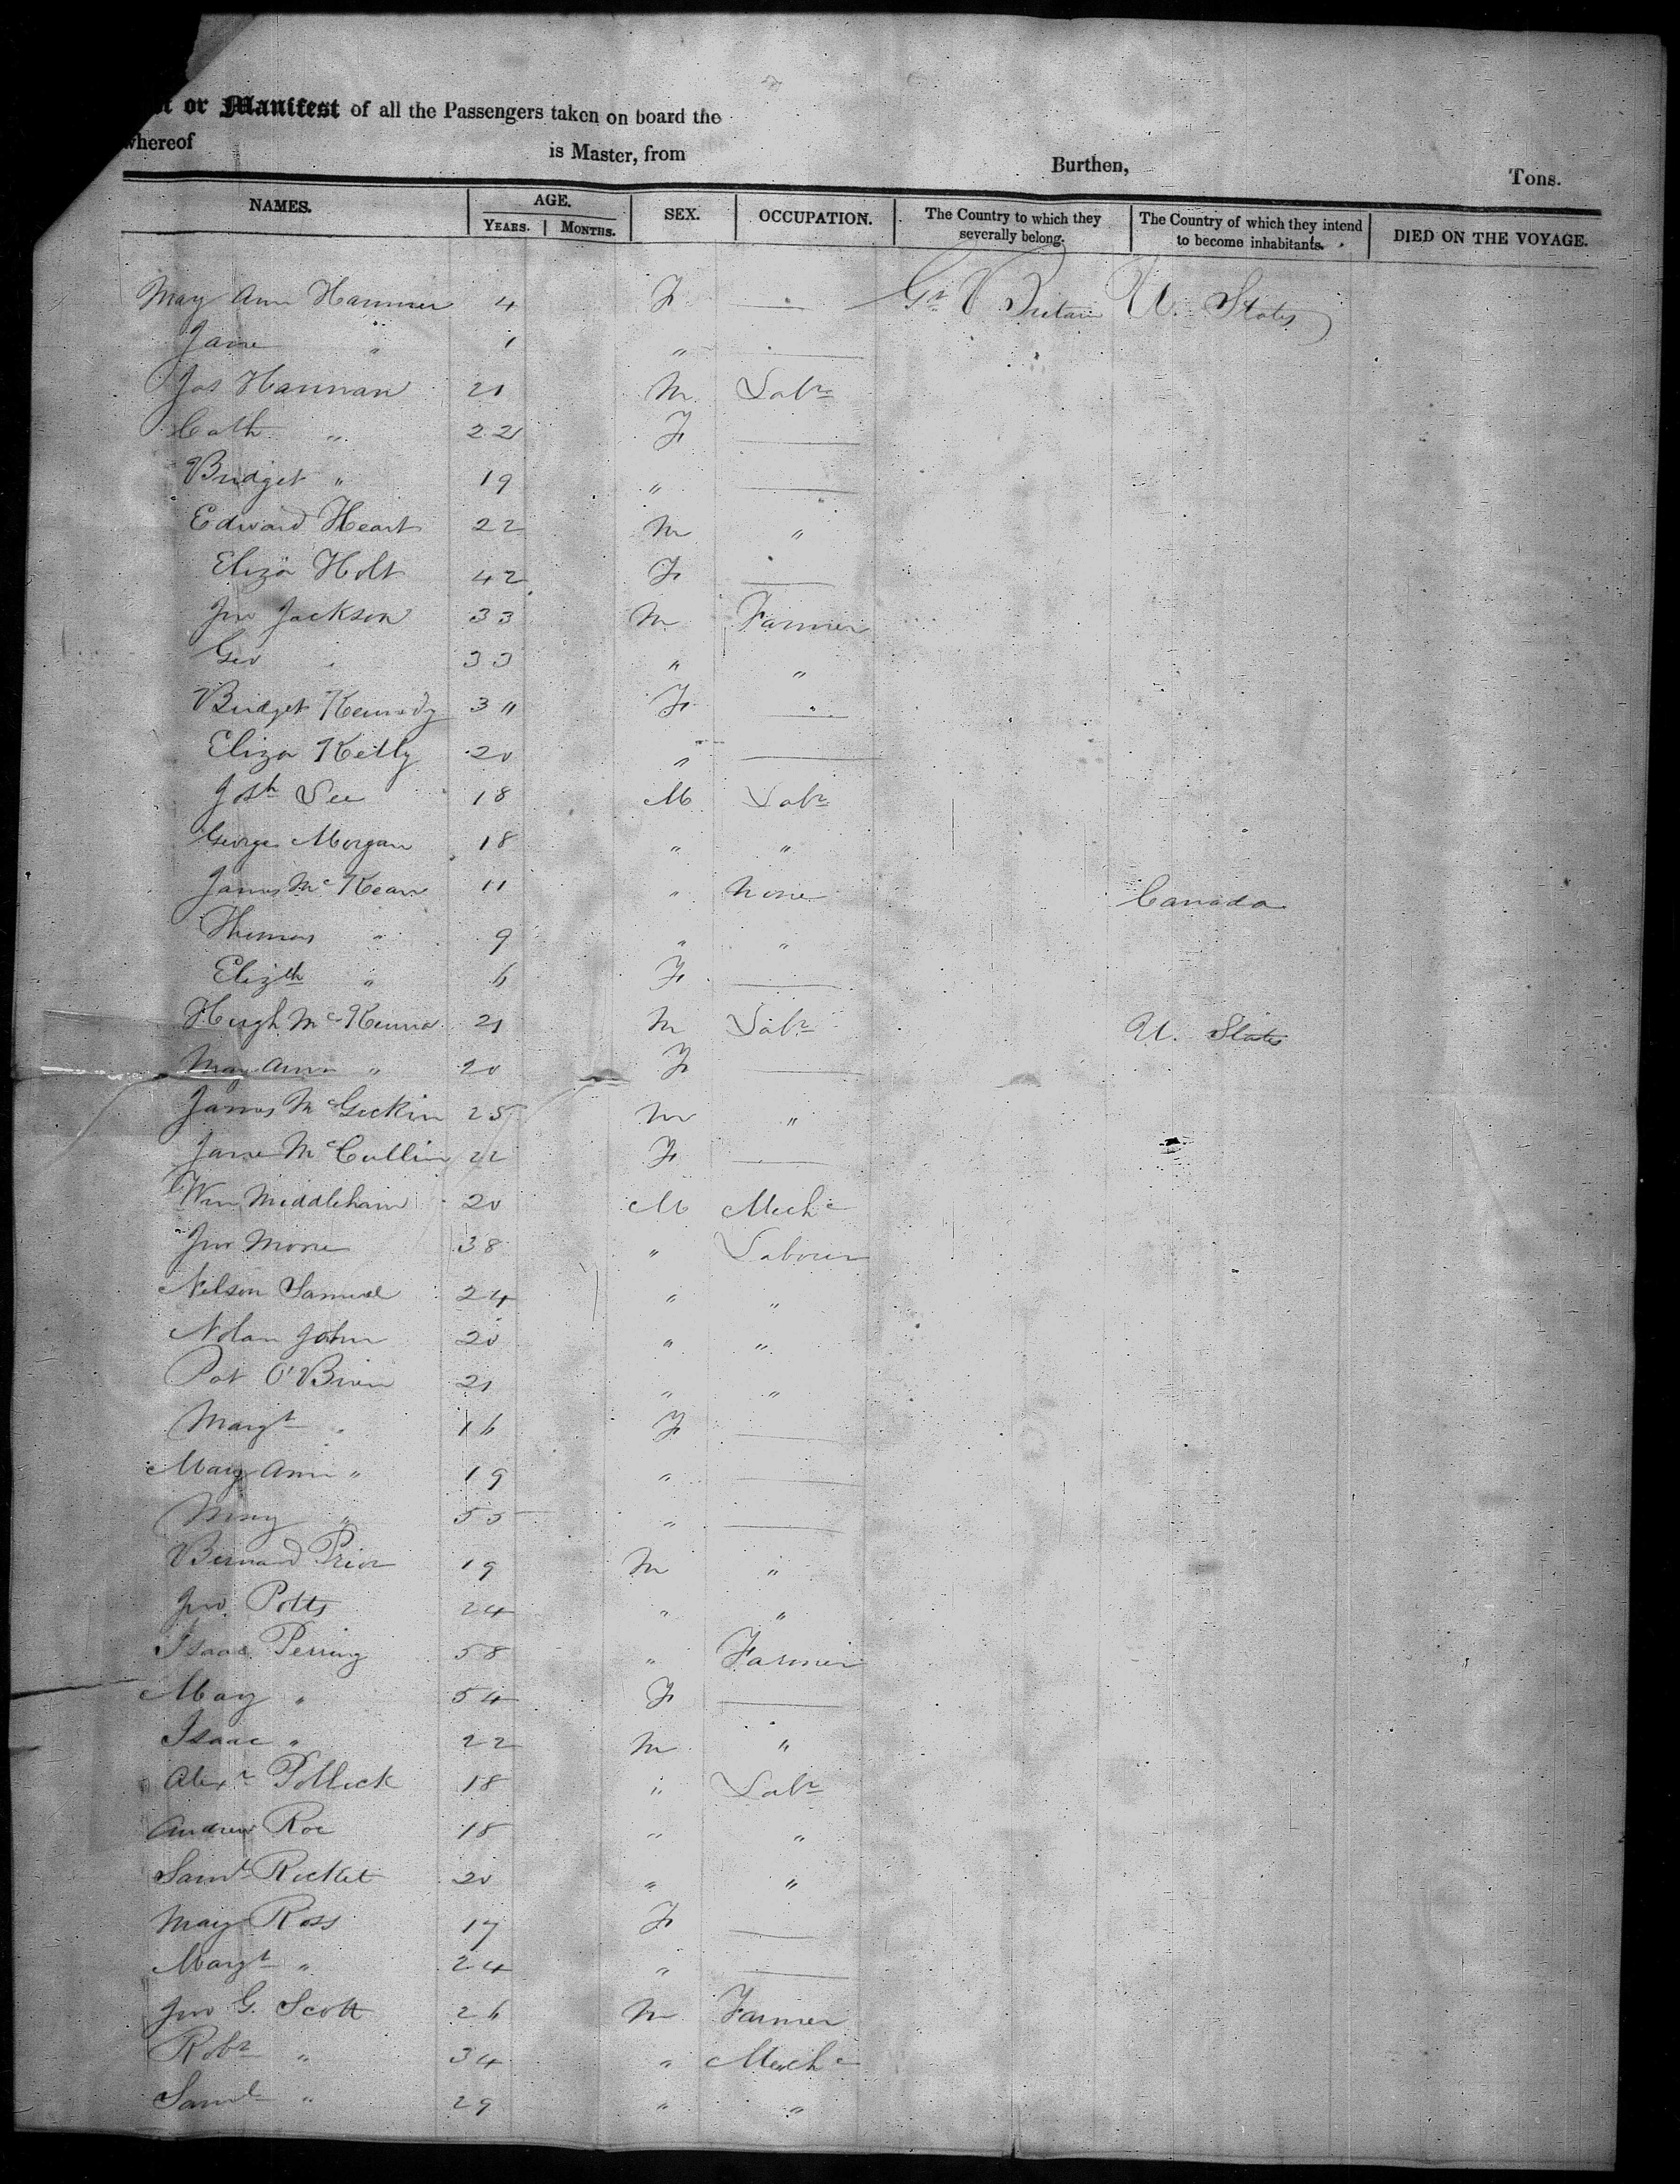 or Manifest of all the Passengers taken on board the
whereof is Master, from Burthen, Tons.
NAMES. AGE. SEX. OCCUPATION. The Country to which they severally belong. The Country of which they intend to become inhabitants. DIED ON THE VOYAGE.
YEARS. MONTHS.
Mary Ann Hammer 4 F — Gt Britain U. States
Jane " 1 " —
Jas Hannan 21 M Labr
Cath " 22 F —
Bridget " 19 " —
Edward Heart 22 M "
Eliza Holt 42 F —
Jno Jackson 33 M Farmer
Geo " 33 " "
Bridget Kennedy 3 " F —
Eliza Kelly 20 " —
Josh Lee 18 M Labr
George Morgan 18 " "
James McKean 11 " None Canada
Thomas " 9 " "
Elizth " 6 F —
Hugh McKenna 21 M Labr U. States
Mary Ann " 20 F —
James McGuckin 25 M "
Jane McCullin 22 F —
Wm Middleham 20 M Mechc
Jno Morre 38 " Labourer
Nelson Samuel 24 " "
Nolan John 20 " "
Pat O'Brien 21 " "
Margt " 16 F —
Mary Ann " 19 " —
Mary " 55 " —
Bernard Prior 19 M "
Jno Potts 24 " "
Isaac Perring 58 " Farmer
Mary " 54 F —
Isaac " 22 M "
Alexr Pollock 18 " Labr
Andrew Roe 18 " "
Saml Ricket 20 " "
Mary Ross 17 F —
Margt " 24 " —
Jno G. Scott 26 M Farmer
Robt " 34 " Mechc
Saml " 29 " "